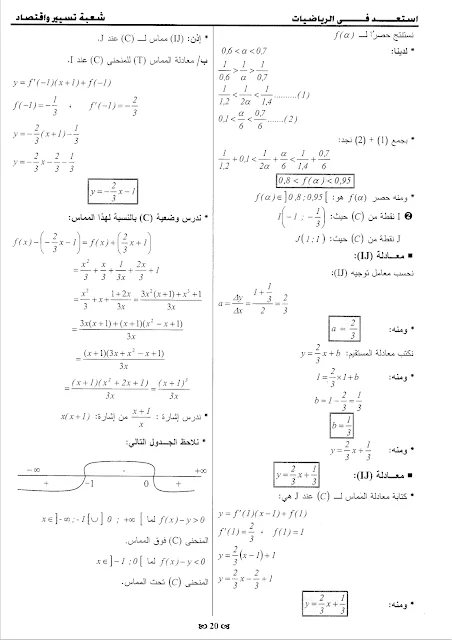 استعد فى الرياضيات
شعبة تسيير واقتصاد
نستنتج حصرا لـ f(α)
* لدينا:
0,6 < α < 0,7
1/0,6 > 1/α > 1/0,7
1/1,2 < 1/2α < 1/1,4 .........(1)
0,1 < α/6 < 0,7/6 .......(2)
* بجمع (1) + (2) نجد:
1/1,2 + 0,1 < 1/2α + α/6 < 1/1,4 + 0,7/6
0,8 < f(α) < 0,95
* ومنه حصر f(α) هو: f(α)∈]0,8 ; 0,95[
❷ I نقطة من (C) حيث: I(-1 ; -1/3)
J نقطة من (C) حيث: J(1 ; 1)
■ معادلة (IJ):
نحسب معامل توجيه (IJ):
a = Δy/Δx = (1 + 1/3)/2 = 2/3
* ومنه: a = 2/3
نكتب معادلة المستقيم: y = 2/3 x + b
* ومنه: 1 = 2/3 × 1 + b
b = 1 - 2/3 = 1/3
b = 1/3
* ومنه: y = 2/3 x + 1/3
■ معادلة (IJ): y = 2/3 x + 1/3
* كتابة معادلة المماس لـ (C) عند J هي:
y = f'(1)(x-1) + f(1)
f'(1) = 2/3 ، f(1) = 1
y = 2/3 (x-1) + 1
y = 2/3 x - 2/3 + 1
* ومنه: y = 2/3 x + 1/3
* إذن: (IJ) مماس لـ (C) عند J.
ب/ معادلة المماس (T) للمنحنى (C) عند I.
y = f'(-1)(x+1) + f(-1)
f(-1) = -1/3 ، f'(-1) = -2/3
y = -2/3 (x+1) - 1/3
y = -2/3 x - 2/3 - 1/3
y = -2/3 x - 1
* ندرس وضعية (C) بالنسبة لهذا المماس:
f(x) - (-2/3 x - 1) = f(x) + (2/3 x + 1)
= x²/3 + x/3 + 1/3x + 2x/3 + 1
= x²/3 + x + (1+2x)/3x = (3x²(x+1) + x³ + 1)/3x
= (3x(x+1) + (x+1)(x² - x + 1))/3x
= (x+1)(3x + x² - x + 1)/3x
= (x+1)(x² + 2x + 1)/3x = (x+1)³/3x
* ندرس إشارة: (x+1)/x من إشارة: x(x+1)
* نلاحظ الجدول التالي:
-∞ - +∞
+ -1 0 +
f(x) - y > 0 لما x∈]-∞ ; -1[∪]0 ; +∞[
المنحنى (C) فوق المماس.
f(x) - y < 0 لما x∈]-1 ; 0[
المنحنى (C) تحت المماس.
20